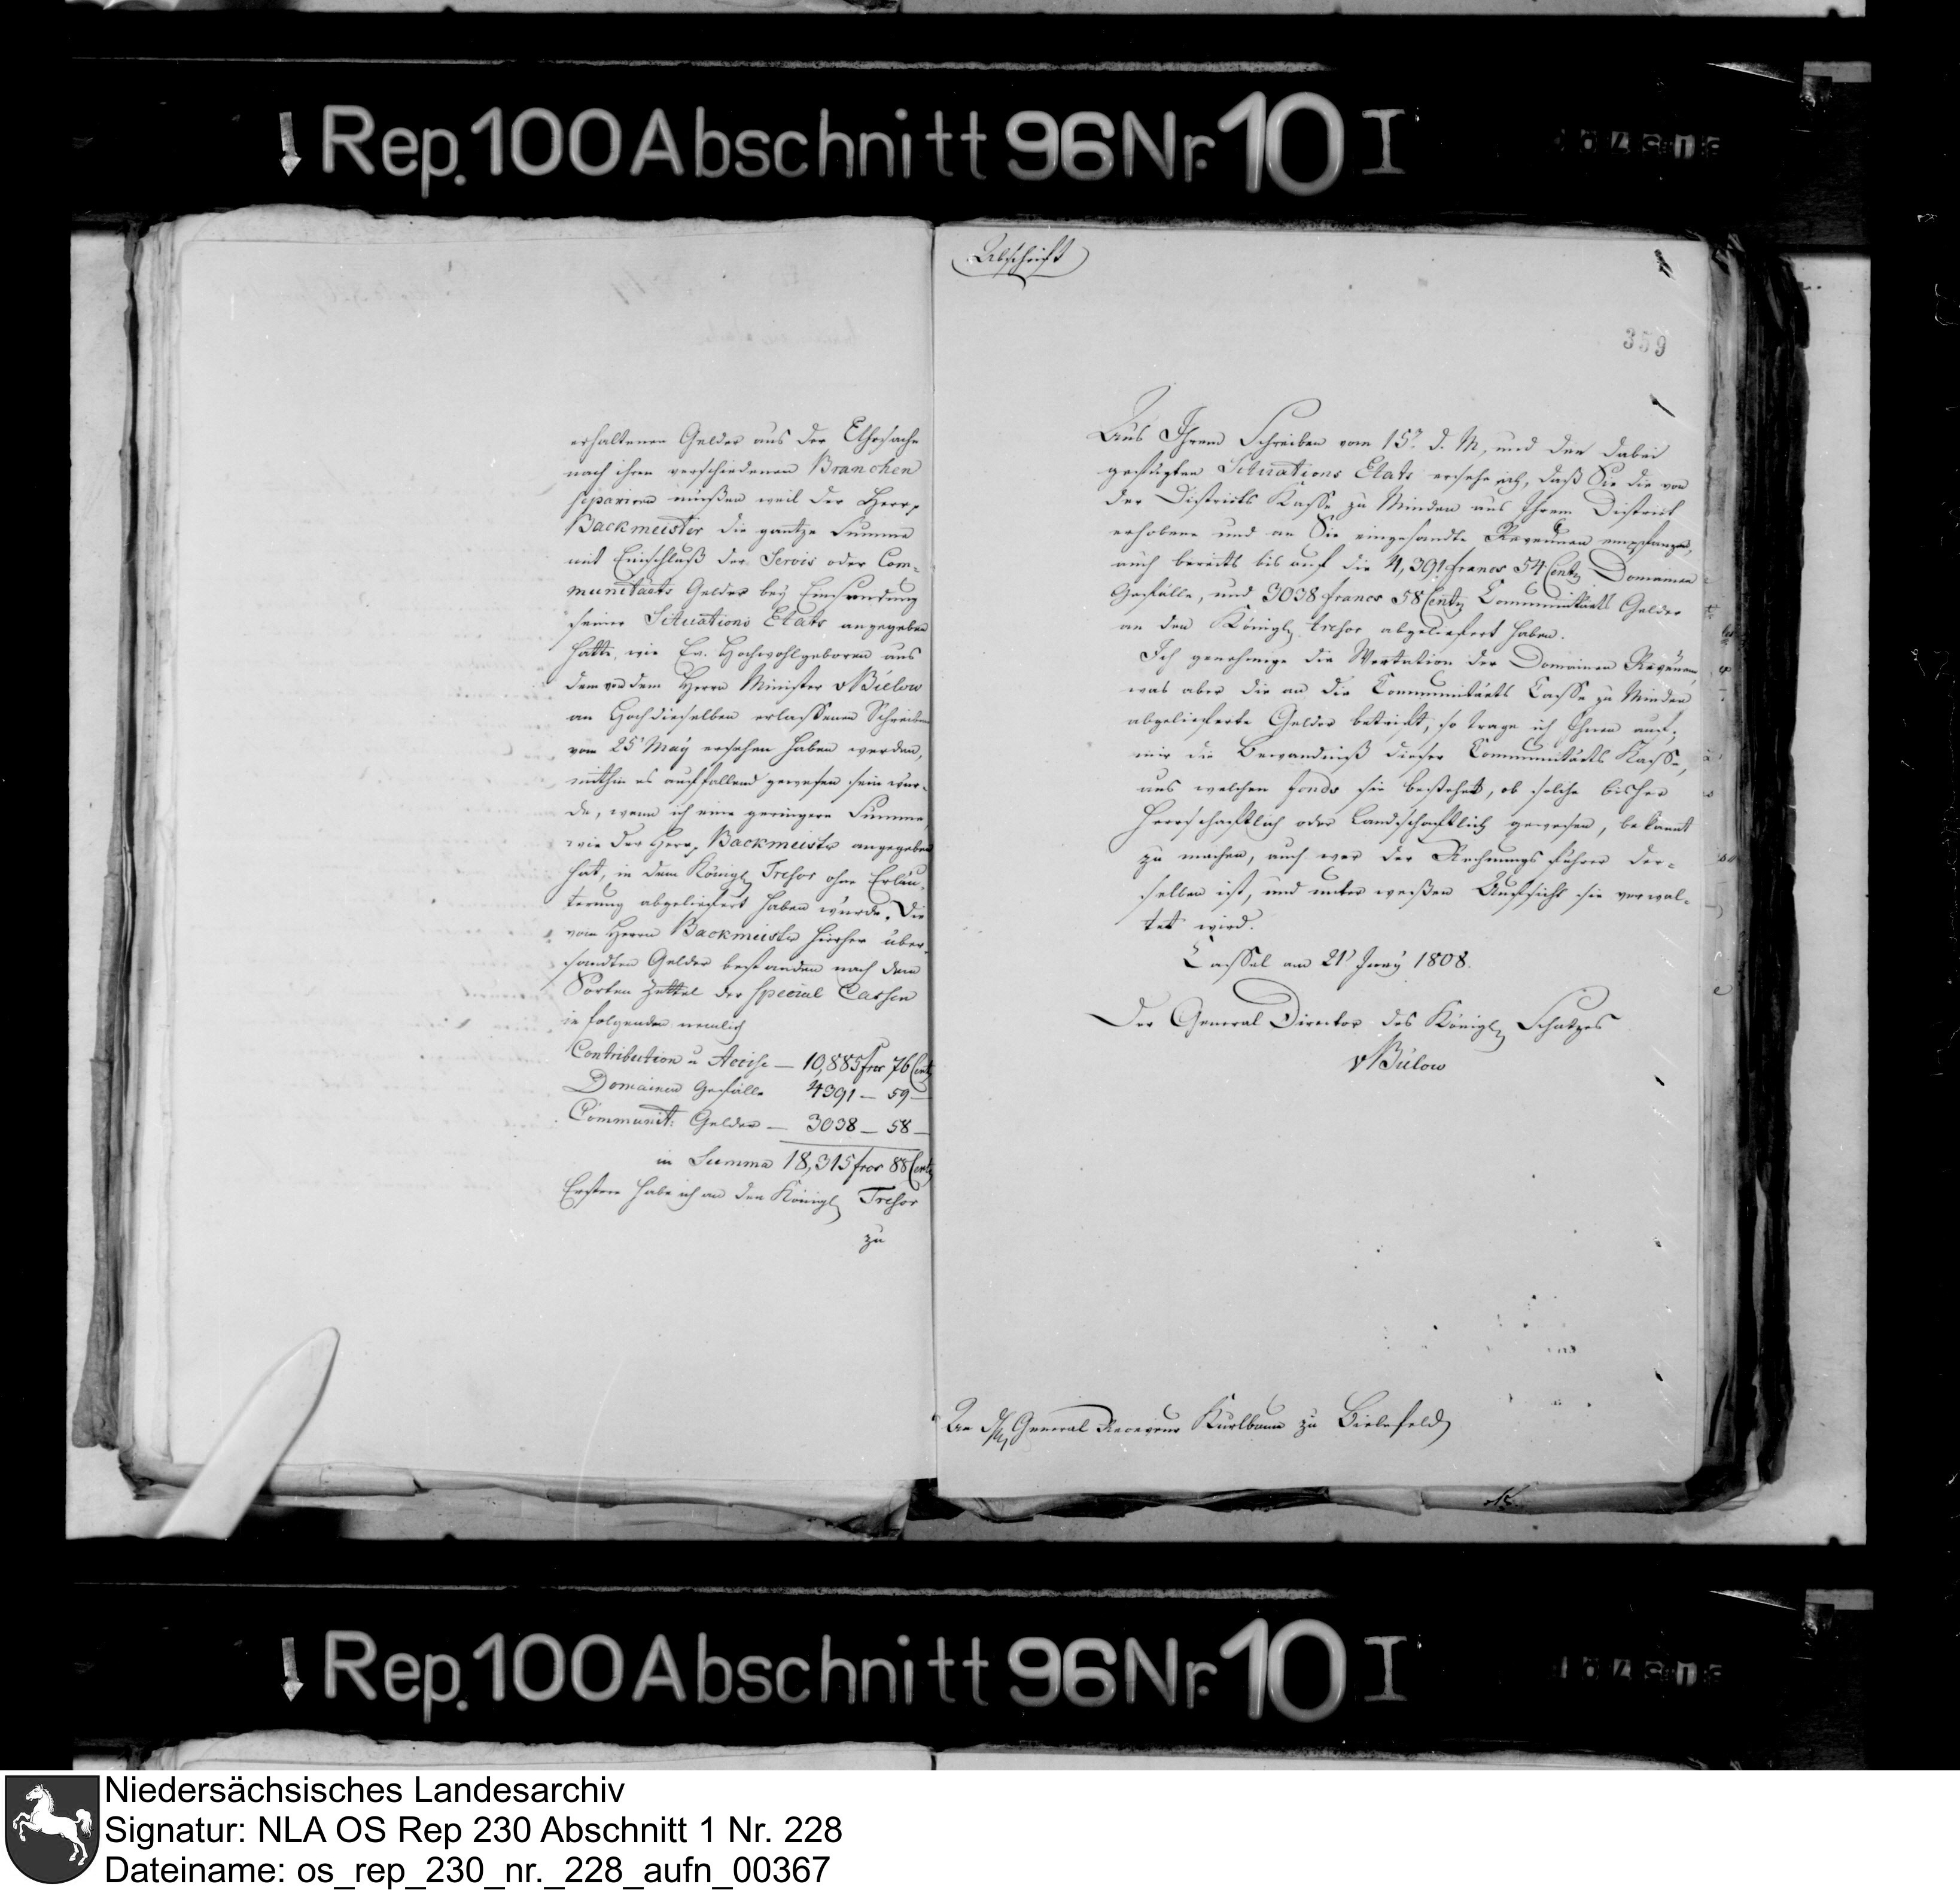 Rep. 100 Abschnitt 96 Nr. 10 I
erhaltenen Gelder aus der
nach ihren verschiedenen Branchen
separiren müßen weil der Herr
Backmeister die gantze Summe
mit Einschluß der Servis oder Com-
munitaets Gelder bey Einsendung
seiner Situations Etats angegeben
hatte, wie Ew. Hochwohlgeboren aus
dem von dem Herrn Minister v Bülow
an Hochdieselben erlassenen Schreiben
vom 25t May ersehen haben werden,
mithin es auffallend gewesen sein wür-
de, wenn ich eine geringere Summe,
wie der Herr Backmeister angegeben
hat, in dem Königl Tresor ohne Erläu-
terung abgeliefert haben würde. Die
vom Herrn Backmeister hierher über-
sandten Gelder bestanden nach dem
Sorten Zettel der special Cassen
in folgenden nemlich
Contribution u Accise — 10,885 frcs 76 Cent
Domainen Gefälle 4391 — 59 —
Communit: Gelder — 3038 — 58 —
in Summa 18,315 frcs 88 Cent
Erstere habe ich an den Königl Tresor
zu
Abschrift
359
Aus Ihrem Schreiben vom 15t d. M, und den dabei
gefügten Situations Etats ersehe ich, daß Sie die von
der Districts Kasse zu Minden aus Ihrem District
erhobene und an Sie eingesandte Revenuen empfangen,
auch bereits bis auf die 4,391 francs 54 Cent Domainen
Gefälle, und 3038 francs 58 Cent Communitaets Gelder
an den Königl tresor abgeliefert haben.
Ich genehmige die der Domainen Revenuen,
was aber die an die Communitaets Casse zu Minden
abgelieferte Gelder betrift, so trage ich Ihnen auf,
mir die Bewandniß dieser Communitaets Kasse,
aus welchen fonds sie bestehet, ob solche bisher
Herrschaftlich oder Landschaftlich gewesen, bekannt
zu machen, auch wer der Rechnungsführer der-
selben ist, und unter weßen Aufsicht sie verwal-
tet wird.
Cassel am 21t Juny 1808.
Der General Director des Königl Schatzes
v Bülow
An General Receveur Kurlbaum zu Bielefeld
Rep. 100 Abschnitt 96 Nr. 10 I
Niedersächsisches Landesarchiv
Signatur: NLA OS Rep 230 Abschnitt 1 Nr. 228
Dateiname: os_rep_230_nr._228_aufn_00367